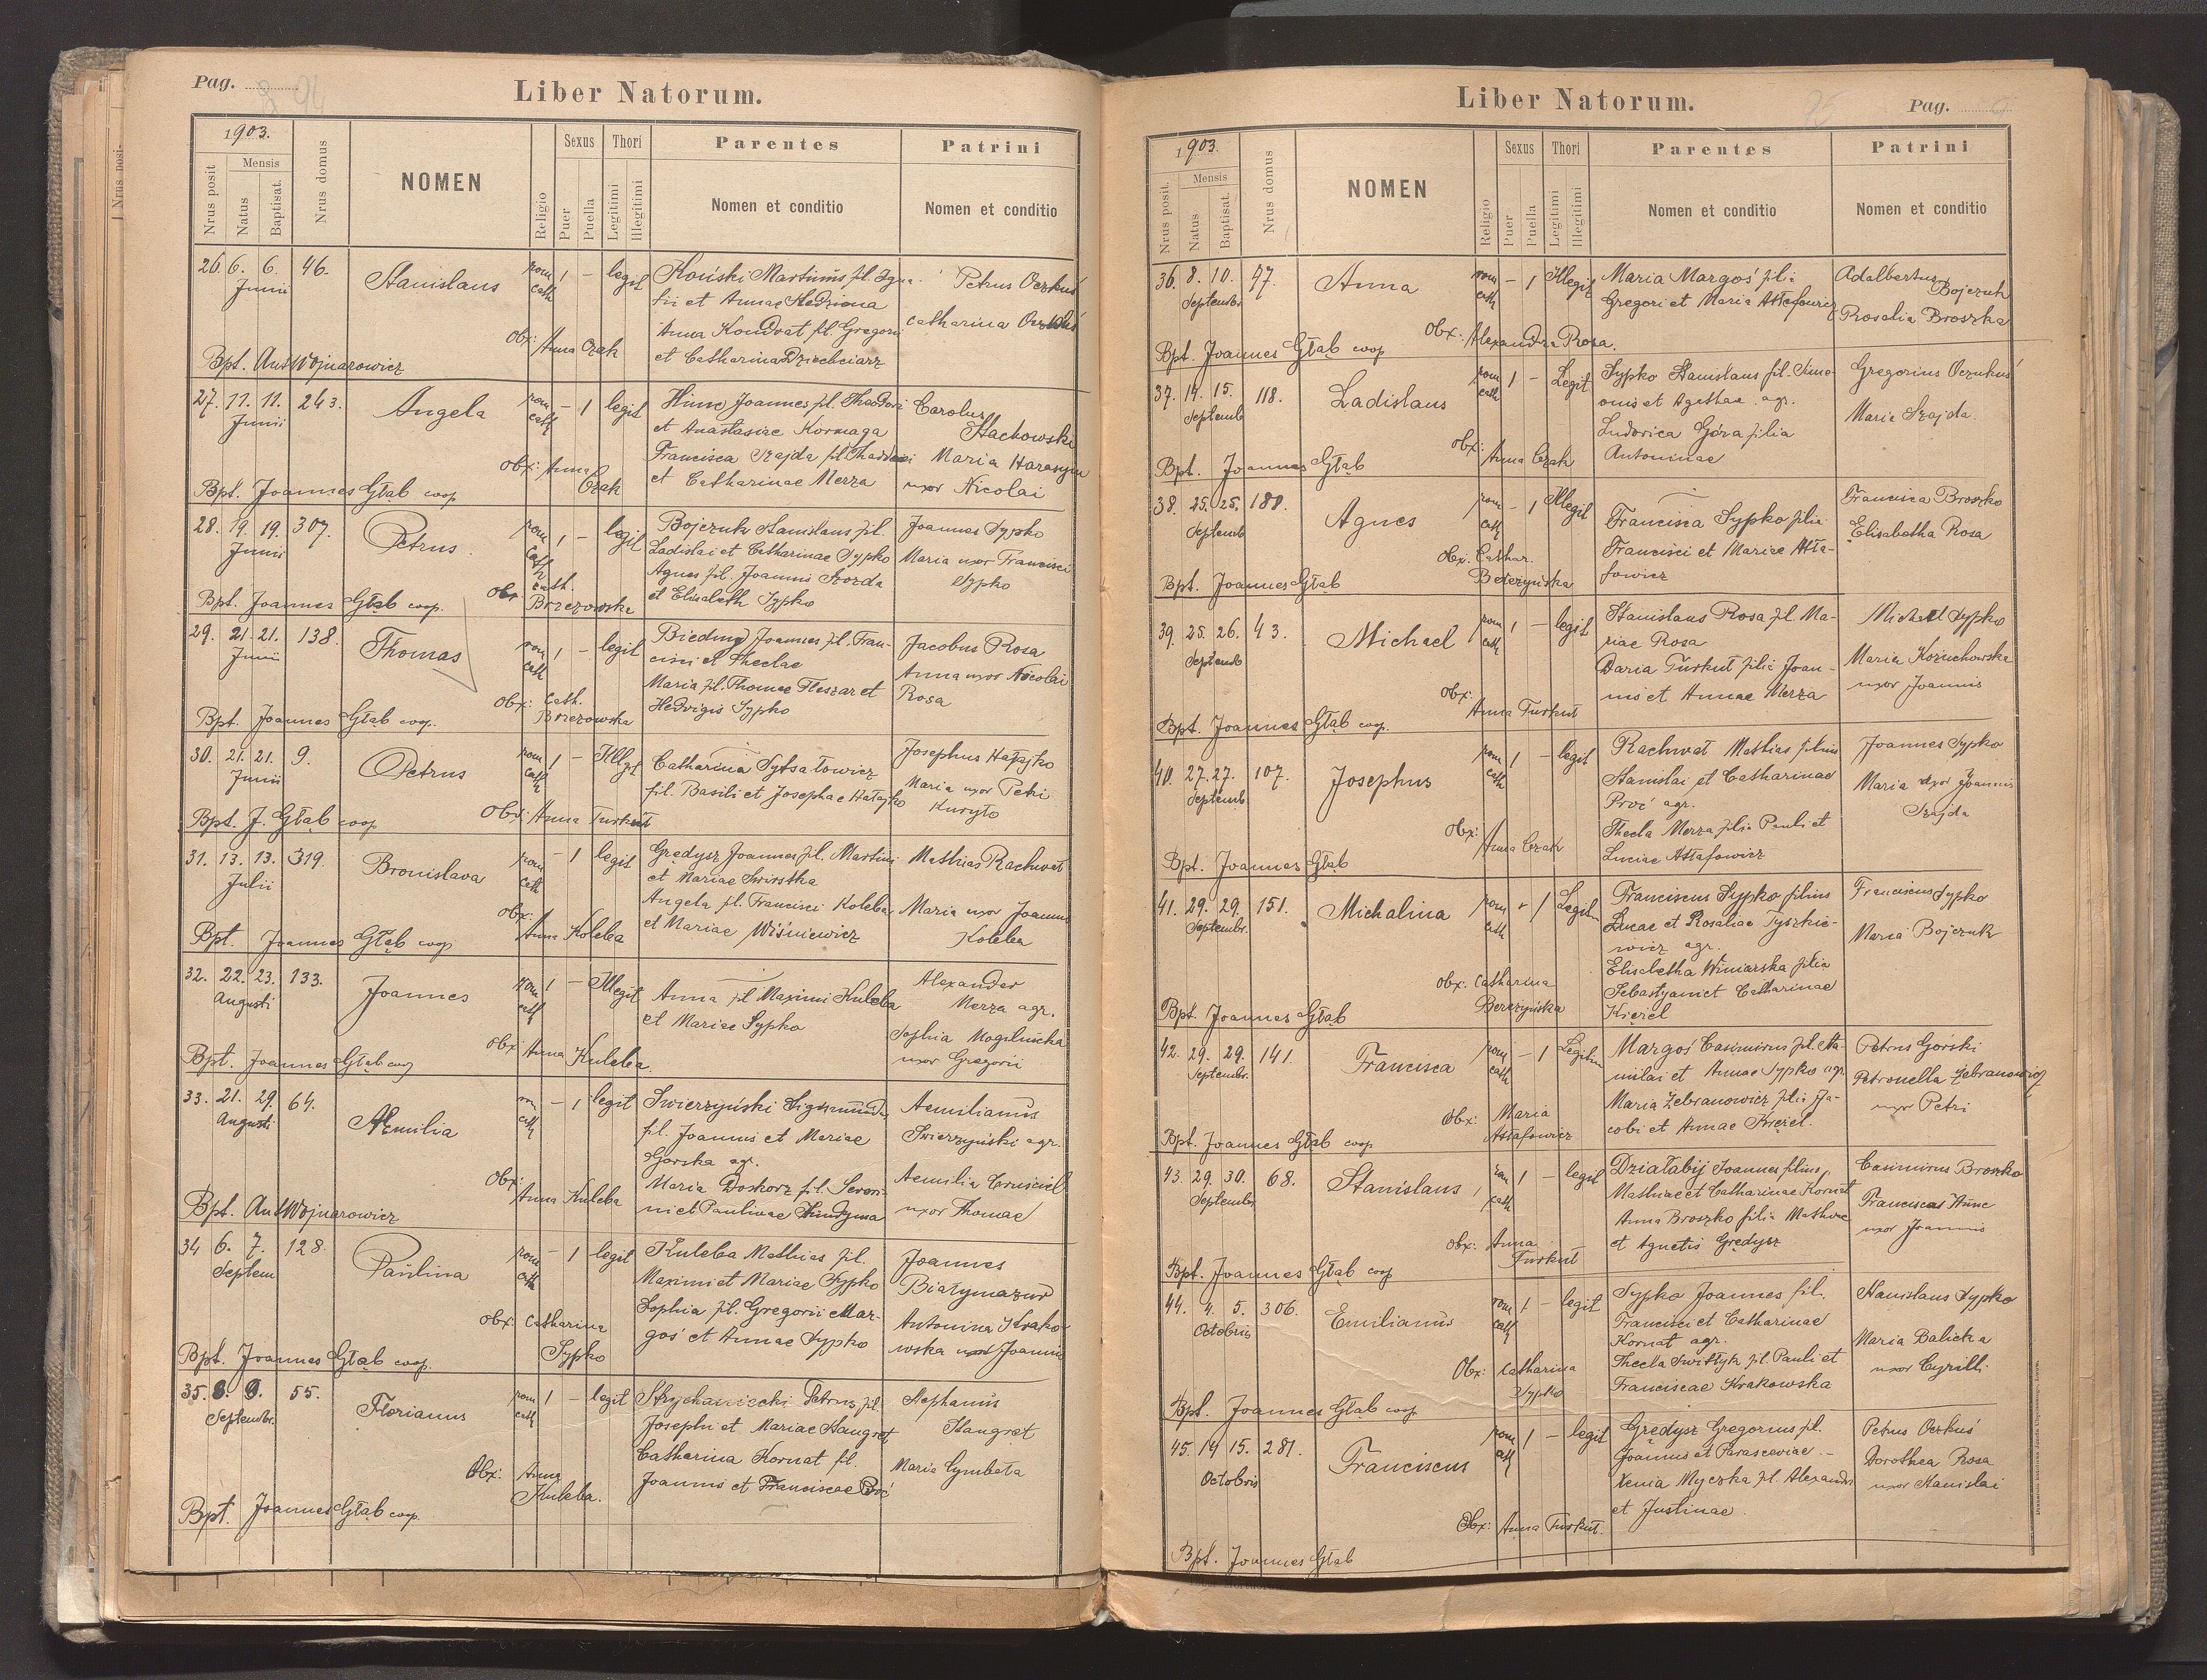 Pag.
Liber Natorum.
1903.
Nrus posit
Mensis
Natus
Baptisat.
Nrus domus
NOMEN
Religio
Sexus
Puer
Puella
Thori
Legitimi
Illegitimi
Parentes
Nomen et conditio
Patrini
Nomen et conditio
26. 6. 6. 46.
Junii
Stanislaus
rom cath
1 – legit
Martinus fil. Igna-
tii et Annae
Anna Kondrat fil. Gregorii
et Catharina Dziechciarz
Petrus Oczkuś
Catharina
Obx: Anna Czak
Bpt. Ant Wojnarowicz
27. 11. 11. 243.
Junii
Angela
rom cath
– 1 legit
Hinc Joannes fil. Theodori
et Anastasiae Kormaga
Francisca Szajda fil. Thaddaei
et Catharinae Merza
Carolus
Stachowski
Maria Harasym
uxor Nicolai
Obx: Anna
Czak
Bpt. Joannes Głąb coop
28. 19. 19. 307.
Junii
Petrus
rom cath
1 – legit
Bojczuk Stanislaus fil.
Ladislai et Catharinae Sypko
Agnes fil. Joannis Szozda
et Elisabeth Sypko
Joannes Sypko
Maria uxor Francisci
Sypko
Obx: Cath.
Brzezowska
Bpt. Joannes Głąb coop.
29. 21. 21. 138.
Junii
Thomas
rom cath
1 – legit
Joannes fil. Fran-
cisci et Theclae
Maria fil. Thomae Fleszar et
Hedvigis Sypko
Jacobus Rosa
Anna uxor Nicolai
Rosa
Obx: Cath.
Brzezowska
Bpt. Joannes Głąb coop.
30. 21. 21. 9.
Junii
Petrus
rom cath
1 – Illgt
Catharina
fil. Basili et Josephae Hałajko
Josephus Hałajko
Maria uxor Petri
Kuryło
Obx: Anna Turkut
Bpt. J. Głąb coop
31. 13. 13. 319.
Julii
Bronislava
rom cath
– 1 legit
Grędysz Joannes fil. Martini
et Mariae
Angela fil. Francisci Koleba
et Mariae Wiśniewicz
Mathias Rachwał
Maria uxor Joannis
Koleba
Obx: Anna Koleba
Bpt. Joannes Głąb coop
32. 22. 23. 133.
Augusti
Joannes
rom cath
1 – Illegit
Anna fil Maximi Kuleba
et Mariae Sypko
Alexander
Merza agr.
Sophia Mogilnicka
uxor Gregorii
Obx: Anna Kuleba.
Bpt. Joannes Głąb coop
33. 21. 29. 64.
Augusti
Aemilia
rom cath
– 1 legit
Swierzyński Sigismundus
fil. Joannis et Mariae
Gorska agr.
Maria Doskorz fil. Severi-
ni et Paulinae
Aemilianus
Swierzyński agr.
Aemilia
uxor Thomae
Obx: Anna Kuleba
Bpt. Ant Wojnarowicz
34 6. 7. 128.
Septem
Paulina
rom cath
– 1 legit
Kuleba Mathias fil.
Maximi et Mariae Sypko
Sophia fil. Gregorii Mar-
goś et Annae Sypko
Joannes
Białymazur
Antonina Krako-
wska uxor Joannis
Obx: Catharina
Sypko
Bpt. Joannes Głąb coop.
35. 8. 9. 55.
Septembr.
Florianus
rom cath
1 – legit
Petrus fil.
Josephi et Mariae Stangret
Catharina Kornat fil.
Joannis et Franciscae Proć
Stephanus
Stangret
Maria Cymbała
Obx: Anna
Kuleba.
Bpt. Joannes Głąb coop.
Liber Natorum.
Pag.
1903.
Nrus posit.
Mensis
Natus
Baptisat.
Nrus domus
NOMEN
Religio
Sexus
Puer
Puella
Thori
Legitimi
Illegitimi
Parentes
Nomen et conditio
Patrini
Nomen et conditio
36. 8. 10. 47.
Septembr
Anna
rom cath
– 1 Illegit
Maria Margoś filia
Gregori et Maria Astafowicz
Adalbertus
Bojczuk
Rosalia Broszka
Obx: Alexandra Rosa.
Bpt. Joannes Głąb coop
37. 14. 15. 118.
Septemb
Ladislaus
rom cath
1 – Legit
Sypko Stanislaus fil. Sime-
onis et Agathae agr.
Ludovica Góra filia
Antoninae
Gregorius Oczkuś
Maria Szajda
Obx: Anna Czak
Bpt. Joannes Głąb
38. 25. 25. 180.
Septemb
Agnes
rom cath
– 1 Illegit
Francisca Sypko filia
Francisci et Mariae Asta-
fowicz
Francisca Broszko
Elisabetha Rosa
Obx: Cathar.
Berezyńska
Bpt. Joannes Głąb
39. 25. 26. 43.
Septemb
Michael
rom cath
1 – legit
Stanislaus Rosa fil. Ma-
riae Rosa
Daria Turkut filia Joan-
nis et Annae Merza
Michael Sypko
Maria Kożuchowska
uxor Joannis
Obx: Anna Turkut
Bpt. Joannes Głąb coop.
40. 27. 27. 107.
Septemb
Josephus
rom cath
1 – legit
Rachwał Mathias filius
Stanislai et Catharinae
Proć agr.
Thecla Merza filia Pauli et
Luciae Astafowicz
Joannes Sypko
Maria uxor Joannis
Szajda
Obx: Anna Czak
Bpt. Joannes Głąb
41. 29. 29. 151.
Septembr.
Michalina
rom cath
– 1 Legit
Franciscus Sypko filius
Lucae et Rosaliae Tyszkie-
wicz agr.
Elisabetha Winiarska filia
Sebastyani et Catharinae
Kiezel
Franciscus Sypko
Maria Bojczuk
Obx: Catharina
Berezyńska
Bpt. Joannes Głąb
42. 29. 29. 141.
Septembr.
Francisca
rom cath
– 1 Legitim
Margoś Casimirus fil. Sta-
nislai et Annae Sypko agr.
Maria Zebranowicz filia Ja-
cobi et Annae Kiezel.
Petrus Górski
Petronella Zebranowicz
uxor Petri
Obx: Maria
Astafowicz
Bpt. Joannes Głąb coop
43. 29. 30. 68.
Septembr
Stanislaus
rom cath
1 – legit
Działabij Joannes filius
Mathiae et Catharinae Kornat
Anna Broszko filia Mathiae
et Agnetis Grędysz
Casimirus Broszko
Francisca Hinc
uxor Joannis
Obx: Anna
Turkut
Bpt. Joannes Głąb coop
44. 4. 5. 306.
Octobris
Emilianus
rom cath
1. – legit
Sypko Joannes fil.
Francisci et Catharinae
Kornat agr.
Thecla fil. Pauli et
Franciscae Krakowska
Stanislaus Sypko
Maria Balicka
uxor Cyrilli
Obx: Catharina
Sypko
Bpt. Joannes Głąb coop
45. 14 15. 281.
Octobris
Franciscus
rom cath
1 – legit
Grędysz Gregorius fil.
Joannis et Parasceviae –
Xenia Myczka fil. Alexandri
et Justinae
Petrus Oczkuś
Dorothea Rosa
uxor Stanislai
Obx: Anna Turkut.
Bpt. Joannes Głąb